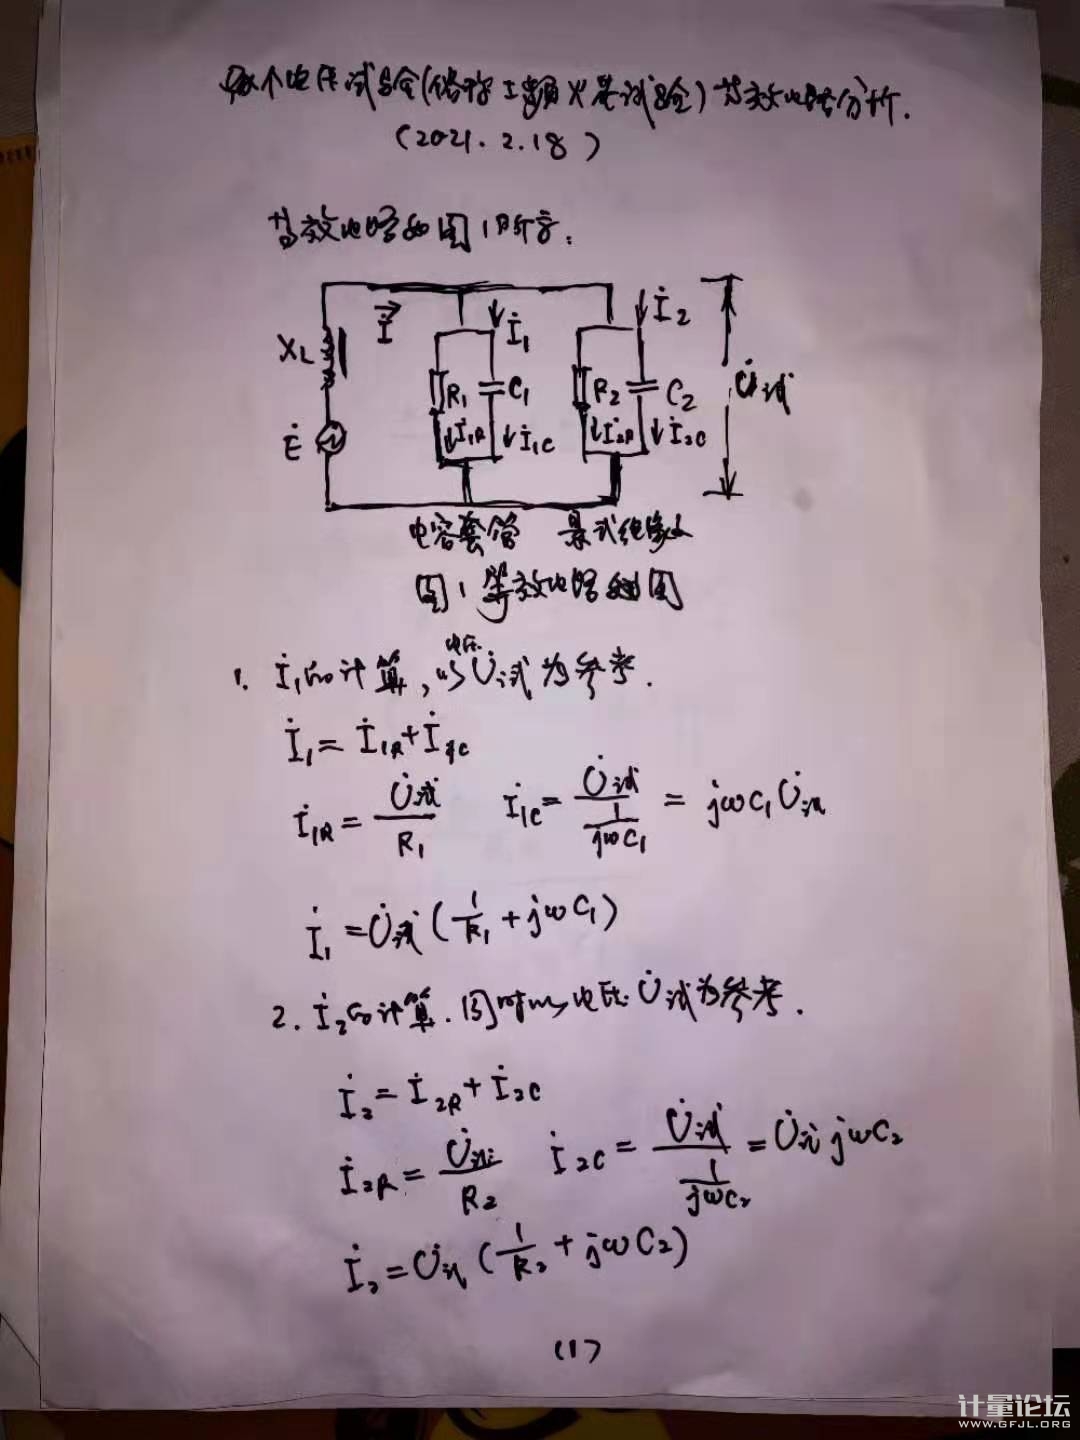 电压试验(俗称工频火花试验)等效电路分析.
(2021.2.18)
等效电路如图1所示:
İ
İ₁
İ₂
X_L
R₁
C₁
R₂
C₂
U̇试
Ė
İ₁R
İ₁C
İ₂R
İ₂C
电容套管 悬式绝缘子
图1 等效电路图
1. İ₁的计算,以电压U̇试为参考.
İ₁=İ₁R+İ₁C
İ₁R=U̇试/R₁ İ₁C=U̇试/(1/jωC₁)=jωC₁U̇试
İ₁=U̇试(1/R₁+jωC₁)
2. İ₂的计算.同时以电压U̇试为参考.
İ₂=İ₂R+İ₂C
İ₂R=U̇试/R₂ İ₂C=U̇试/(1/jωC₂)=U̇试jωC₂
İ₂=U̇试(1/R₂+jωC₂)
(1)
计量论坛
WWW.GFJL.ORG